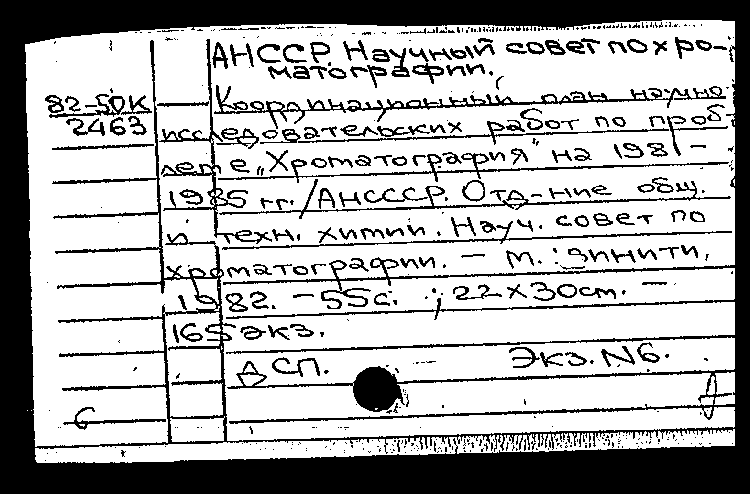 АНССР. Научный совет по хро-
матографии.
82-5DK
2463
Координационный план научно
исследовательских работ по проб-
леме „Хроматография" на 1981-
1985 гг./АНСССР. Отд-ние общ.
и техн. химии. Науч. совет по
хроматографии. - М.: ВИНИТИ,
1982. - 55с. ; 22×30см. -
165экз.
ДСП. Экз. N6.
6